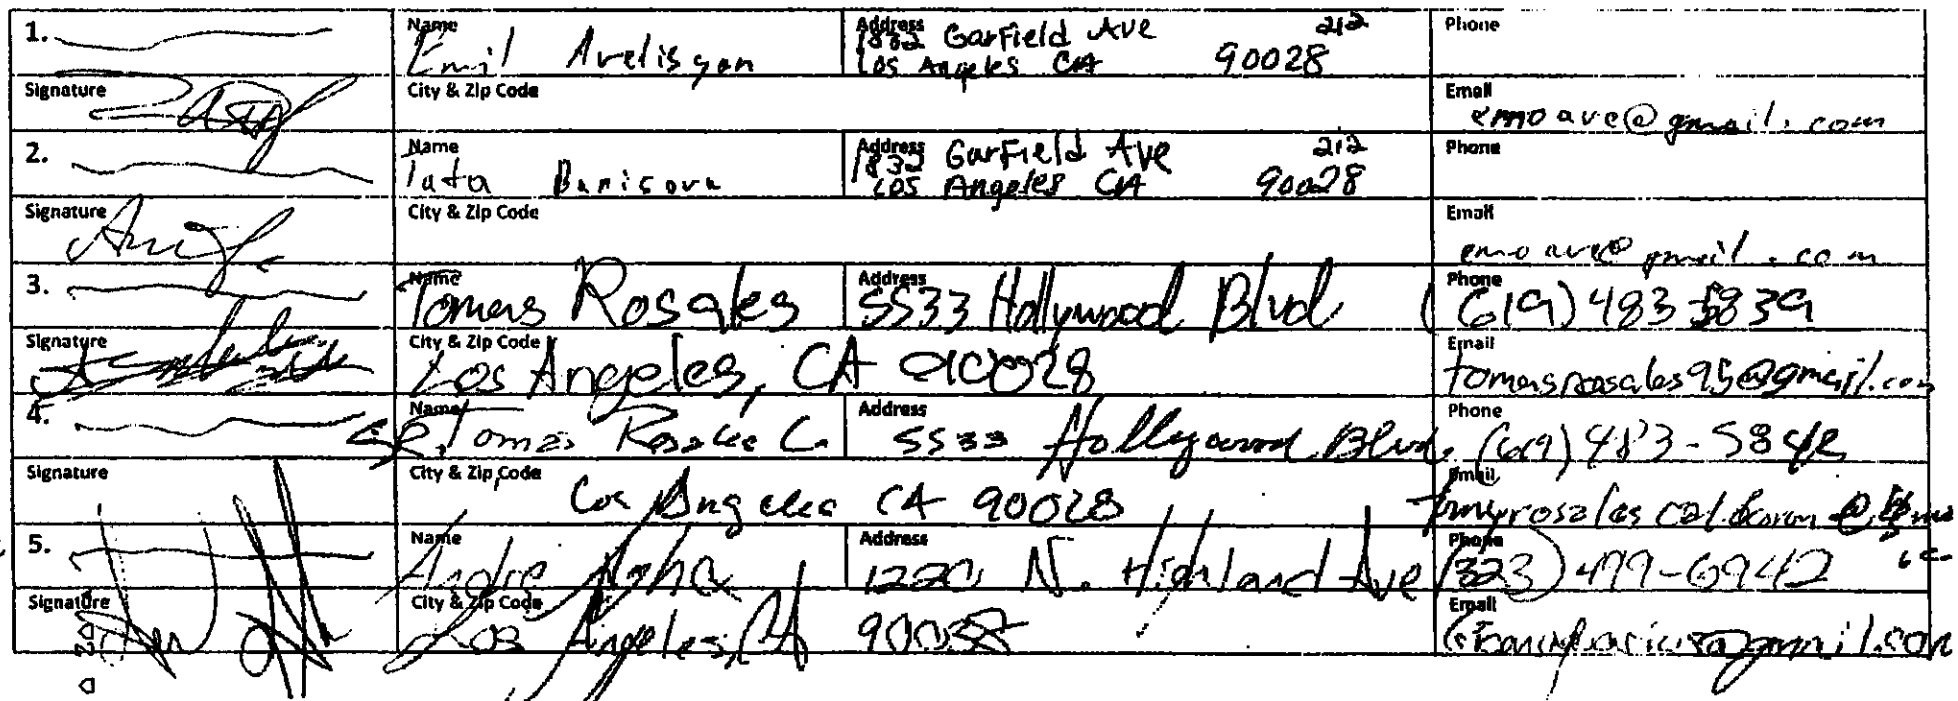 1.
Name
Emil Avetisyan
Address
1832 Garfield Ave 212
Los Angeles CA 90028
Phone
Signature
City & Zip Code
Email
emoave@gmail.com
2.
Name
Tata Banisova
Address
1832 Garfield Ave 212
Los Angeles CA 90028
Phone
Signature
City & Zip Code
Email
emoave@gmail.com
3.
Name
Tomas Rosales
Address
5533 Hollywood Blvd
Phone
(619) 483 5839
Signature
City & Zip Code
Los Angeles, CA 90028
Email
tomasrosales95@gmail.com
4.
Name
Tomas Rosales C.
Address
5533 Hollywood Blvd.
Phone
(619) 483-5842
Signature
City & Zip Code
Los Angeles CA 90028
Email
5.
Name
Andre
Address
1220 N. Highland Ave
Phone
(323) 499-6942
Signature
City & Zip Code
Los Angeles, CA 90038
Email